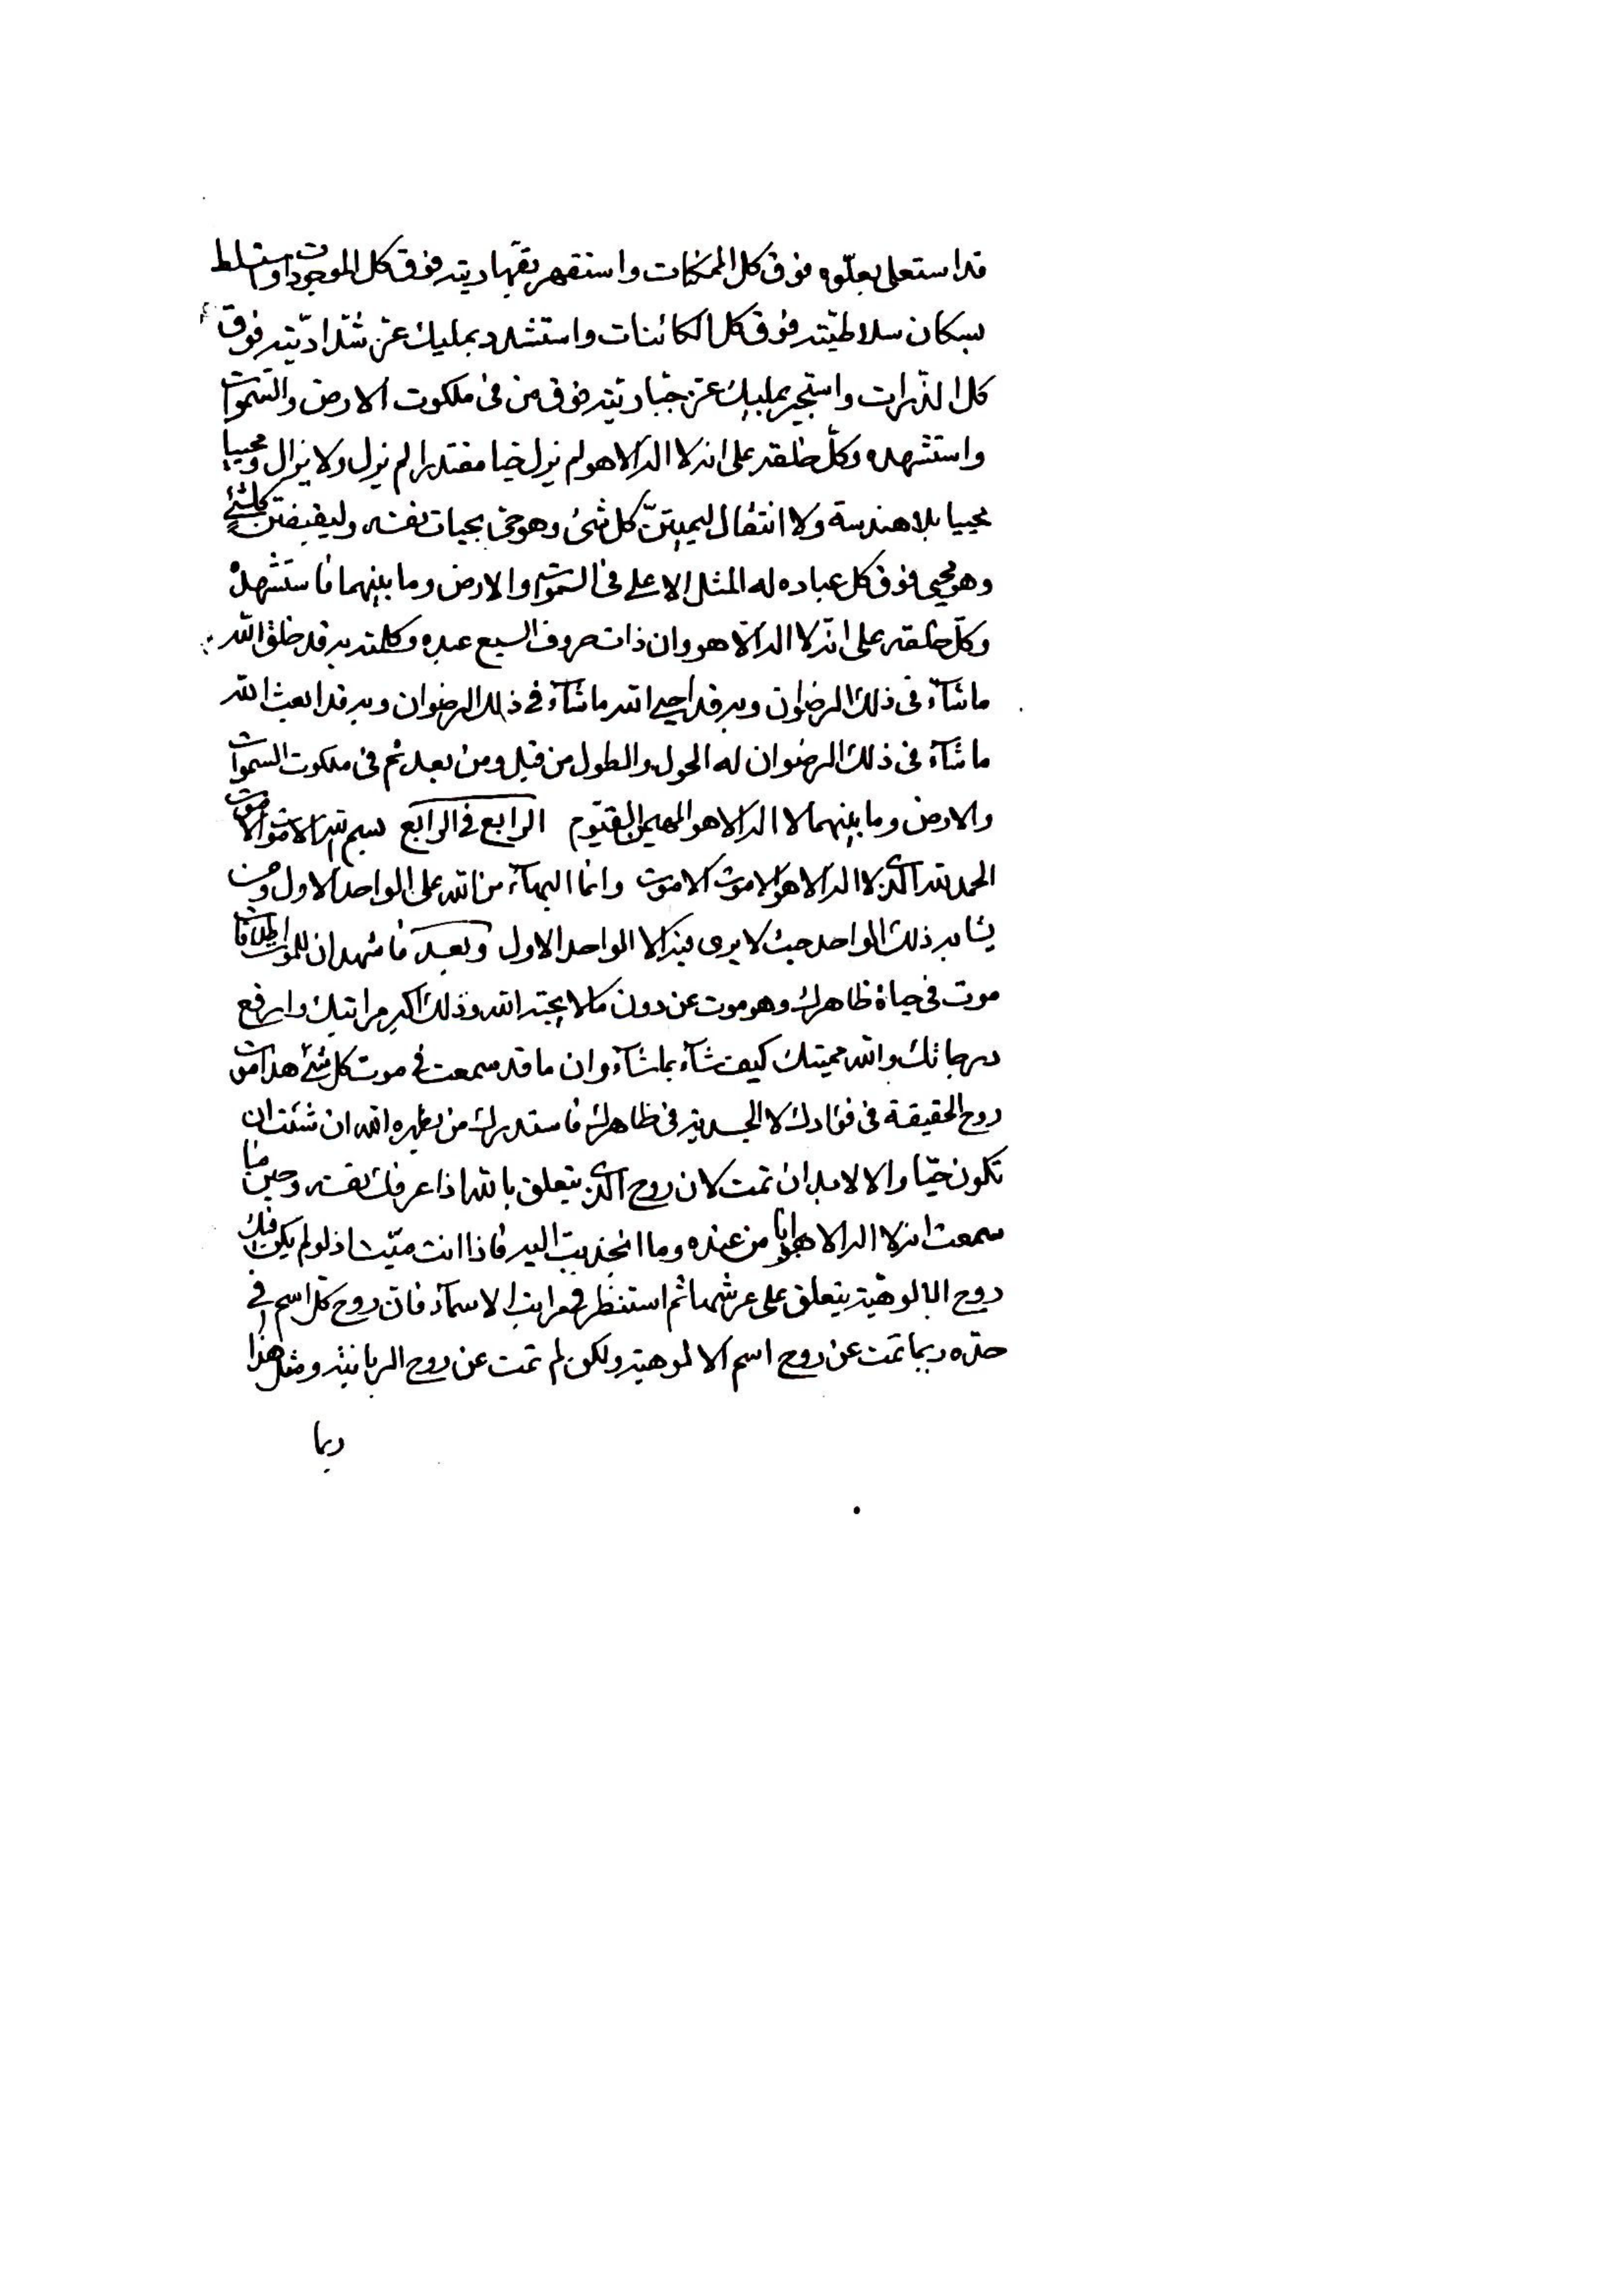 قد استعلى بعلوه فوق كل الممكنات واستقهر بقهاديته فوق كل الموجودات واستسلط
بسكان سلاطيته فوق كل الكائنات واستشدد بمليك عز شداديته فوق
كل الذرات واستجبر بمليك عز جباريته فوق من فى ملكوت الارض والسموات
واستشهده وكل خلقه على انه لا اله الا هو لم يزل حيا مقتدرا لم يزل ولا يزال محييا
محييا بلا هندسة ولا انتقال ليميتن كل شئ وهو حى بحيات نفسه وليقبضن كلشئ
وهو محيى فوق كل عباده له المثل الاعلى فى السموات والارض وما بينهما فاستشهده
وكل خلقه على انه لا اله الا هو وان ذات حروف السبع عبده وكلمته به قد خلق الله
ماشآء فى ذلك الرضوان وبه قد احيى الله ماشآء فى ذلك الرضوان وبه قد ابعث الله
ماشآء فى ذلك الرضوان له الحول والطول من قبل ومن بعد ثم فى ملكوت السموات
والارض وما بينهما لا اله الا هو المهيمن القيوم الرابع فى الرابع بسم الله الاموت الاموت
الحمد لله الذى لا اله الا هو الاموت الاموت وانما البهآء من الله على الواحد الاول ومن
يشابه ذلك الواحد حيث لا يرى فيه الا الواحد الاول وبعد فاشهد ان للموت اطلاقات
موت فى حياة ظاهرك وهو موت عن دون مالا يحبه الله وذلك اكبر مراتبك وارفع
درجاتك والله مميتك كيف شآء بماشآء وان ما قد سمعت فى موت كل شئ هذا موت
روح الحقيقة فى فؤادك لا الجسدية فى ظاهرك فاستدرك من يظهره الله ان شئت ان
تكون حيا والا لابد ان تمت لان روح الذى يتعلق بالله اذا عرفك نفسه وحين ما
سمعت انه لا اله الا هو من عنده وما انجذبت اليه فاذا انت ميت اذ لو لم يكن فيك
روح الالوهية يتعلق على عرشها ثم استنظر فى مراتب الاسمآء فان روح كل اسم فى
حده ربما تمت عن روح اسم الالوهية ولكن لم تمت عن روح الربانية ومثل هذا
ربما